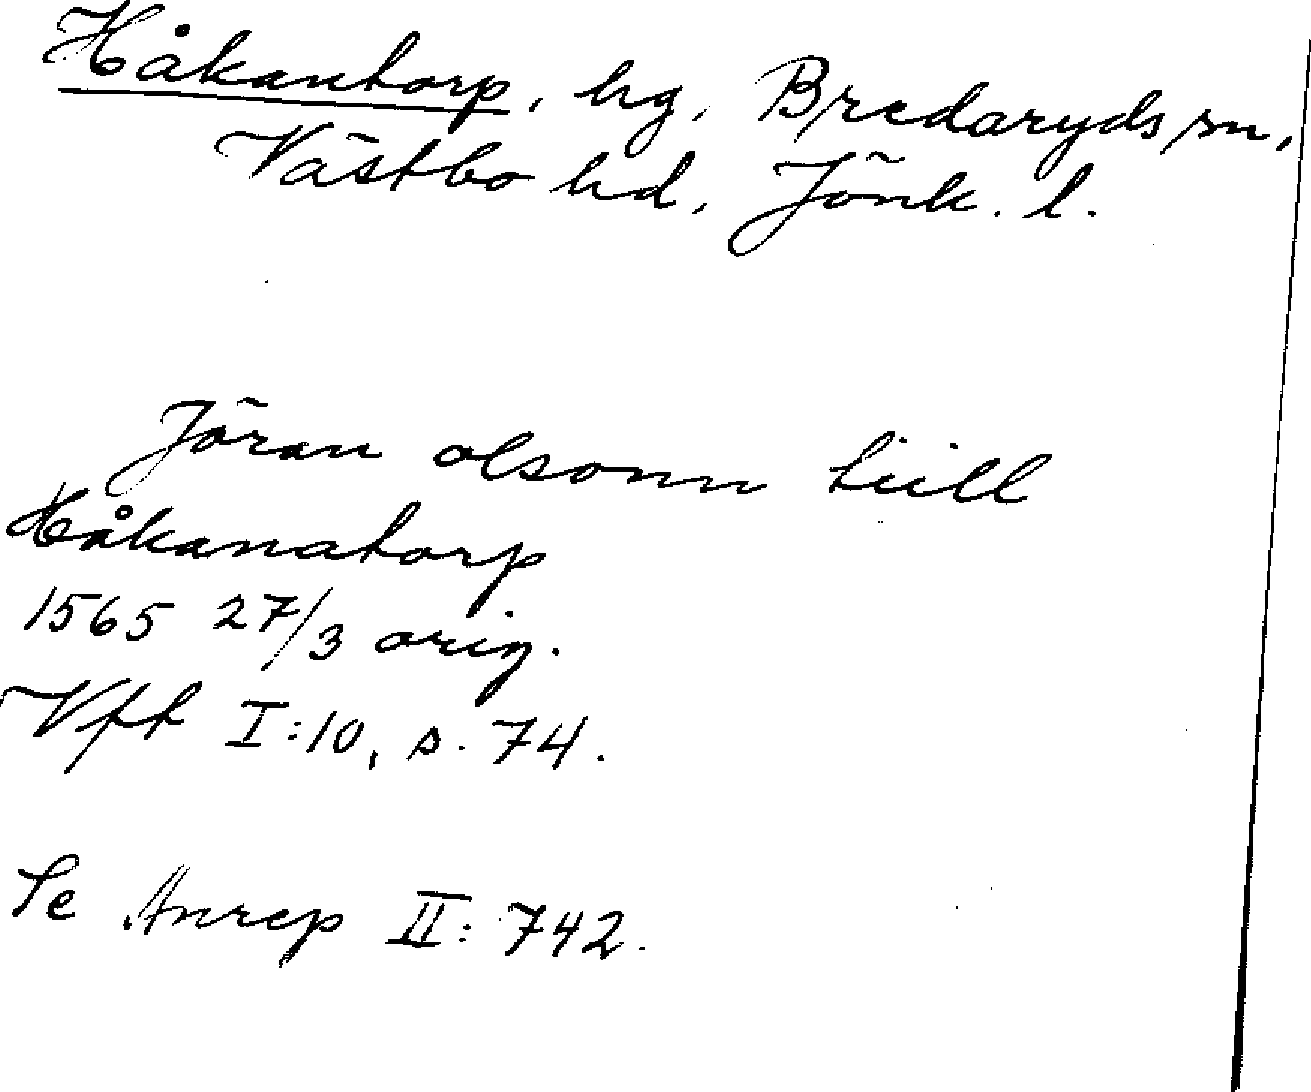 Håkantorp, hg, Bredaryds sn,
Västbo hd, Jönk. l.
Jöran olsonn tiill
Håkanatorp
1565 27/3 orig.
Vft I:10, s. 74.
Se Anrep II: 742.